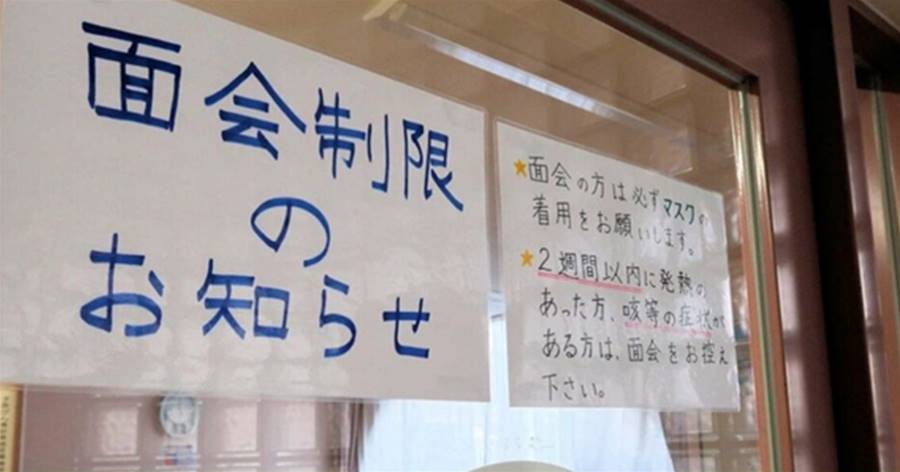 面会制限
の
お知らせ
★面会の方は必ずマスクの
着用をお願いします。
★2週間以内に発熱の
あった方、咳等の症状が
ある方は、面会をお控え
下さい。